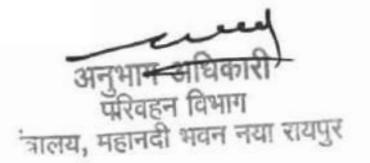 अनुभाग अधिकारी
परिवहन विभाग
ंत्रालय, महानदी भवन नया रायपुर